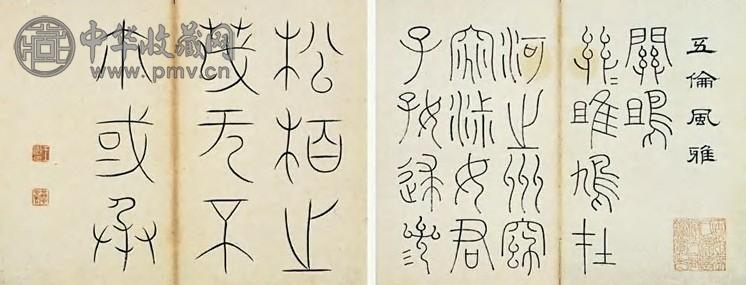 五倫風雅
關鴡
關〻雎鳩在
河之州窈
窕淑女君
子好逑參
松柏之
茂无不
尒或承
中华收藏网
www.pmv.cn